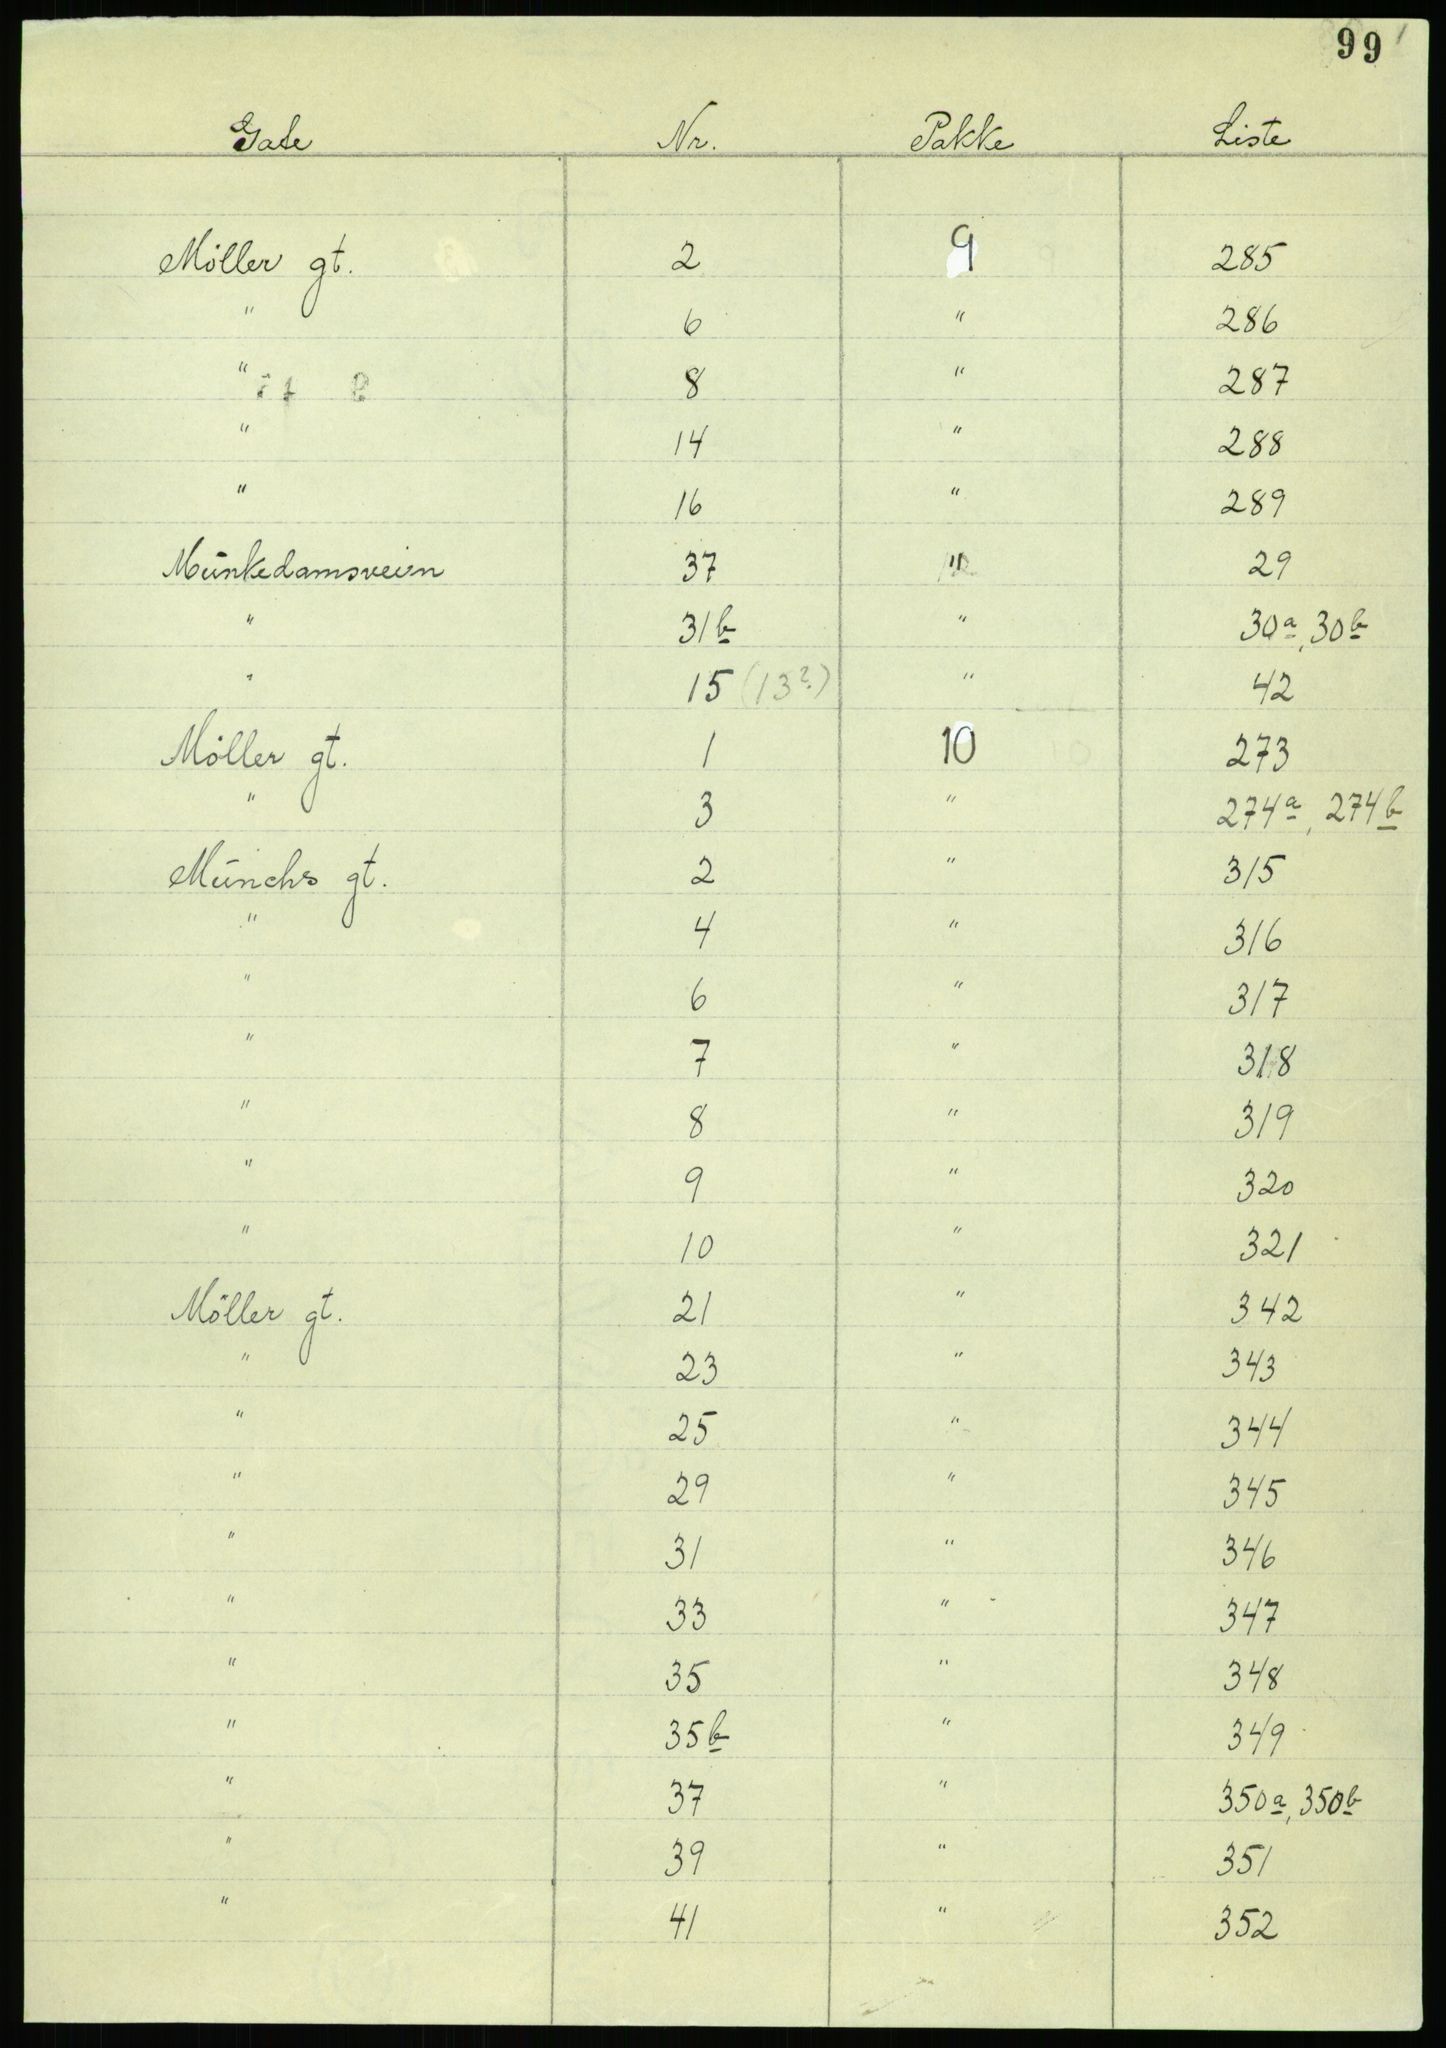 99
Gate Nr. Pakke Liste
Möller gt. 2 9 285
" 6 " 286
" 8 " 287
" 14 " 288
" 16 " 289
Munkedamsveien 37 " 29
" 31b " 30a, 30b
" 15 (13?) " 42
Möller gt. 1 10 273
" 3 " 274a, 274b
Munchs gt. 2 " 315
" 4 " 316
" 6 " 317
" 7 " 318
" 8 " 319
" 9 " 320
" 10 " 321
Möller gt. 21 " 342
" 23 " 343
" 25 " 344
" 29 " 345
" 31 " 346
" 33 " 347
" 35 " 348
" 35b " 349
" 37 " 350a, 350b
" 39 " 351
" 41 " 352